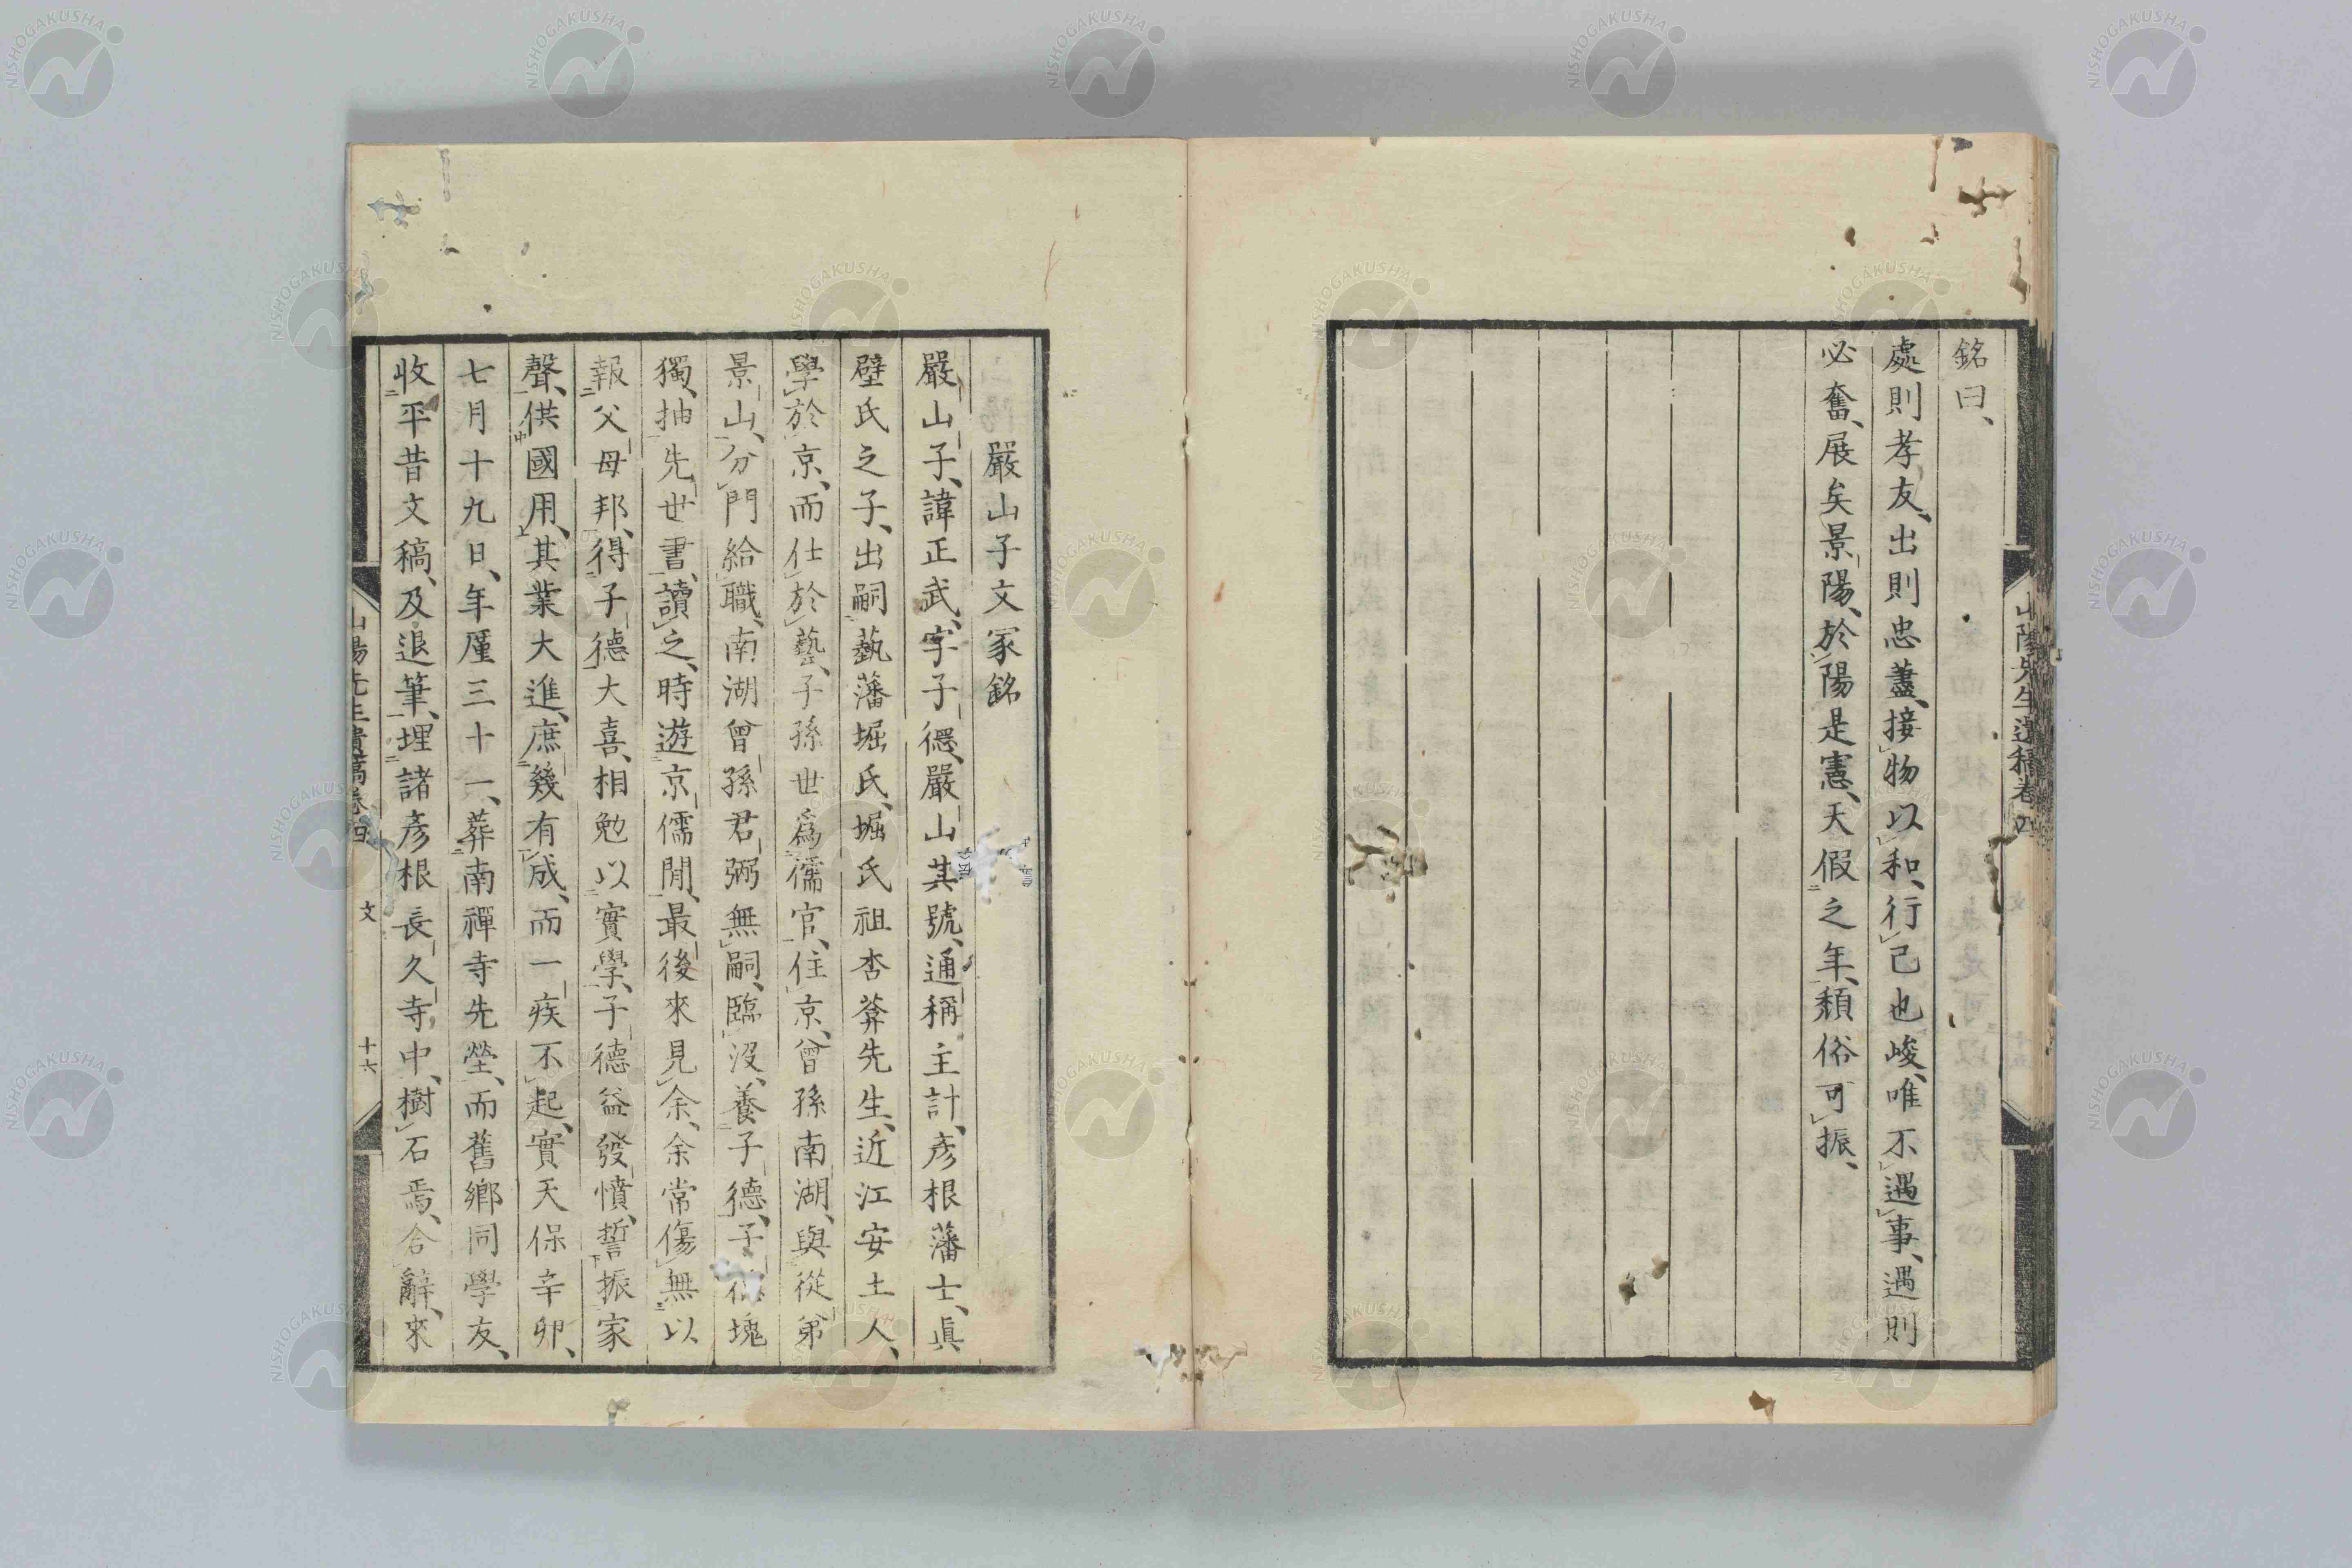 銘曰、
處則孝友、出則忠藎、接物以和、行己也峻、唯不遇事、遇則
必奮、展矣景陽、於陽是憲、天假之年、頽俗可振、
山陽先生遺稿卷四
嚴山子文冢銘
嚴山子、諱正武、字子德、嚴山其號、通稱主計、彥根藩士、眞
壁氏之子、出嗣藝藩堀氏、堀氏祖杏菴先生、近江安土人、
學於京、而仕於藝、子孫世爲儒官、住京、曾孫南湖、與從弟
景山、分門給職、南湖曾孫君弼無嗣、臨沒、養子德、子德塊
獨、抽先世書、讀之、時遊京儒間、最後來見余、余常傷無以
報父母邦、得子德大喜、相勉以實學、子德益發憤、誓振家
聲、供國用、其業大進、庶幾有成、而一疾不起、實天保辛卯、
七月十九日、年厪三十一、葬南禪寺先塋、而舊鄉同學友、
收平昔文稿、及退筆、埋諸彥根長久寺中、樹石焉、合辭、來
山陽先生遺稿卷四 文 十六
NISHOGAKUSHA